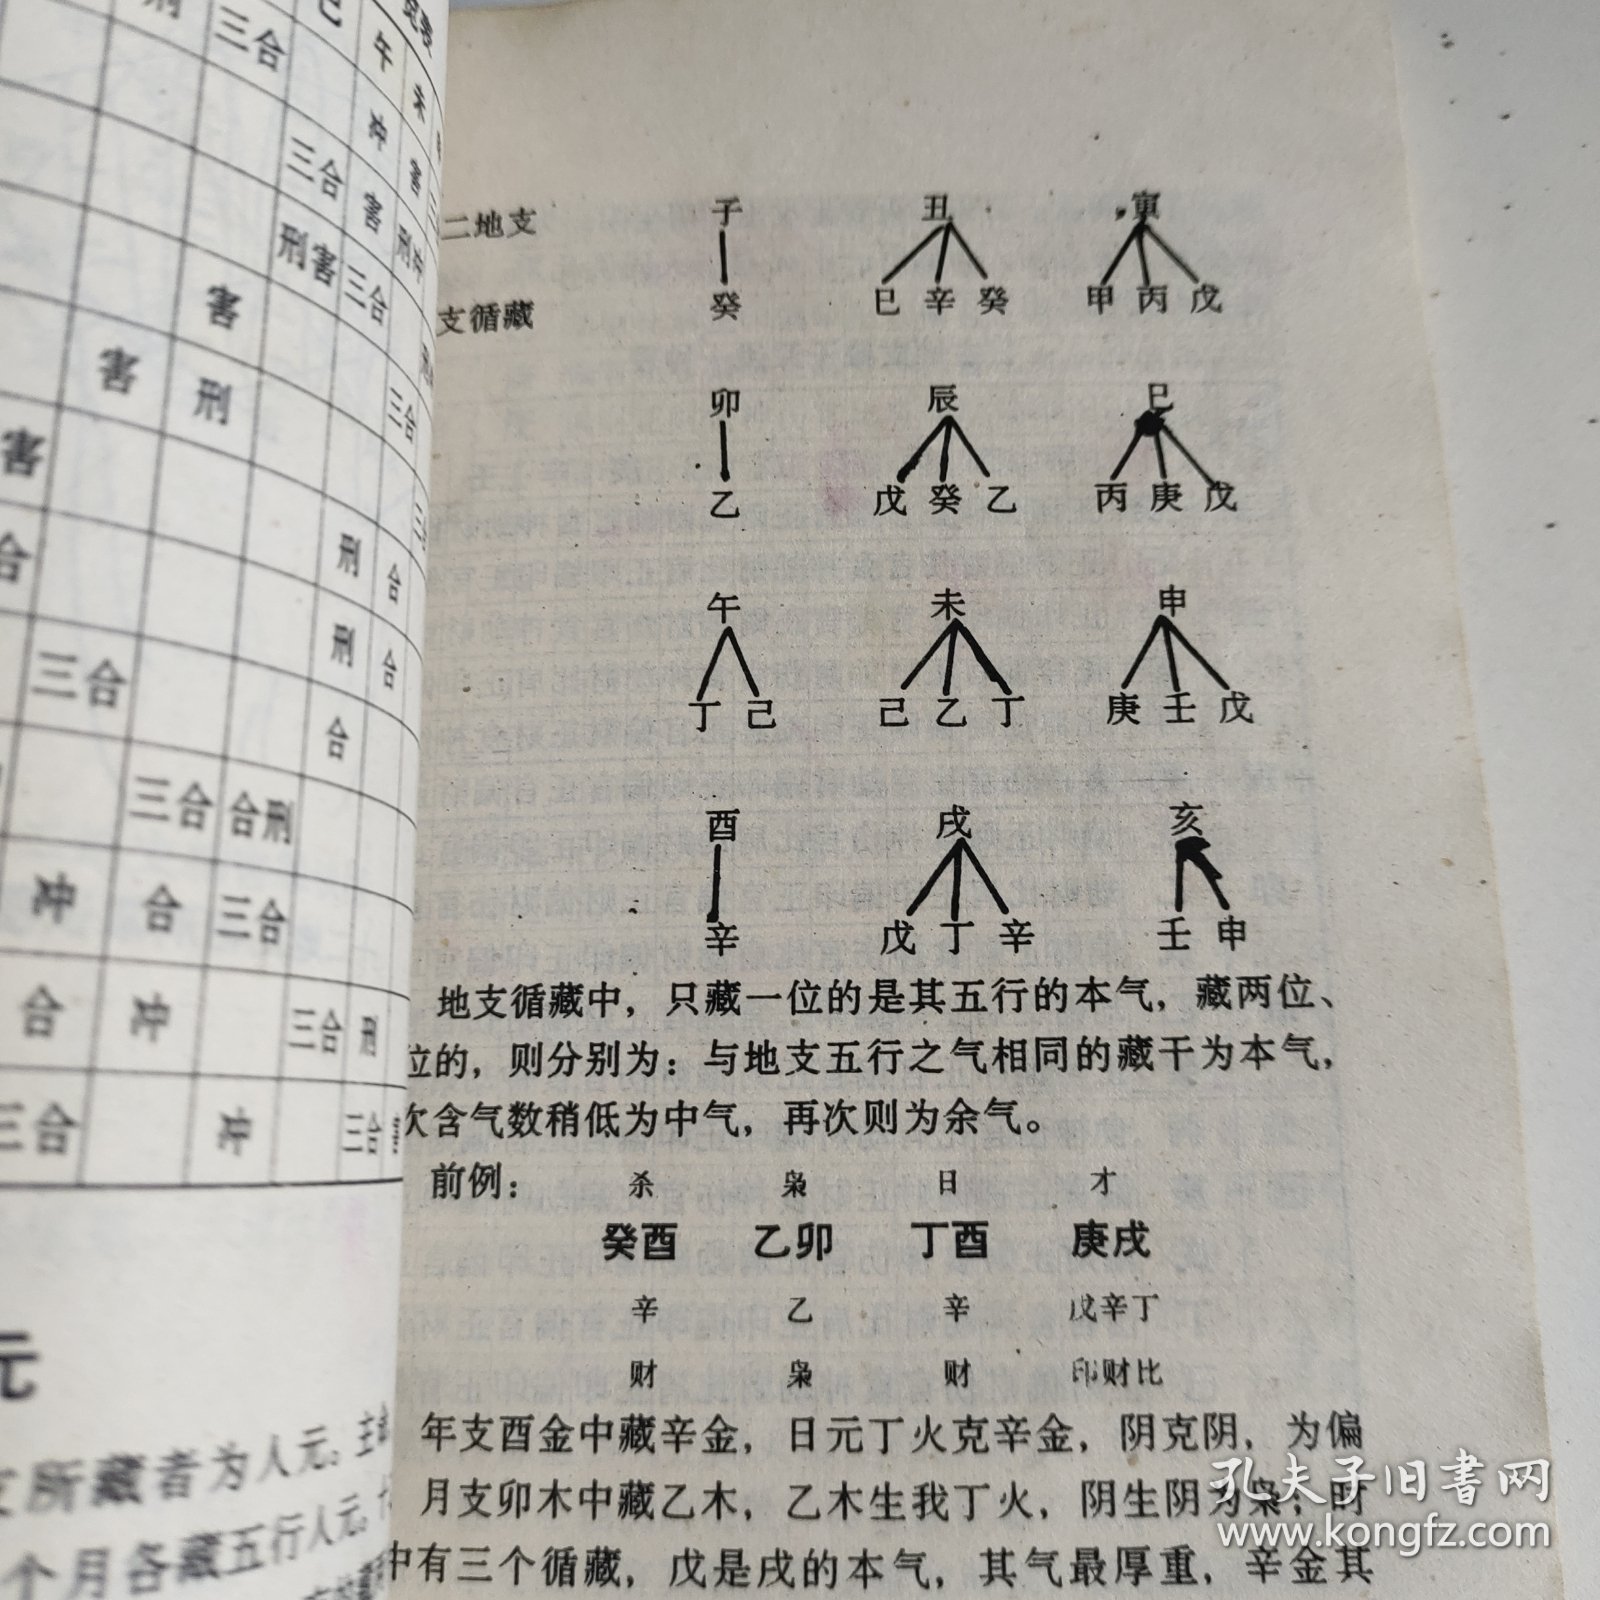 三合
午
未
冲
害
三合
害
刑害
三合
刑冲
害
害
刑
三合
害
刑
合
合
刑
合
三合
合
三合
合刑
冲
合
三合
合
冲
三合
刑
三合
冲
三合
元
所藏者为人元。
个月各藏五行人元。
二地支
子
丑
寅
支循藏
癸
巳 辛 癸
甲 丙 戊
卯
辰
巳
乙
戊 癸 乙
丙 庚 戊
午
未
申
丁 己
己 乙 丁
庚 壬 戊
酉
戌
亥
辛
戊 丁 辛
壬 申
地支循藏中，只藏一位的是其五行的本气，藏两位、
位的，则分别为：与地支五行之气相同的藏干为本气，
次含气数稍低为中气，再次则为余气。
前例： 杀 枭 日 才
癸酉 乙卯 丁酉 庚戌
辛 乙 辛 戊辛丁
财 枭 财 印财比
年支酉金中藏辛金，日元丁火克辛金，阴克阴，为偏
月支卯木中藏乙木，乙木生我丁火，阴生阴为枭；时
中有三个循藏，戊是戌的本气，其气最厚重，辛金其
孔夫子旧书网
www.kongfz.com